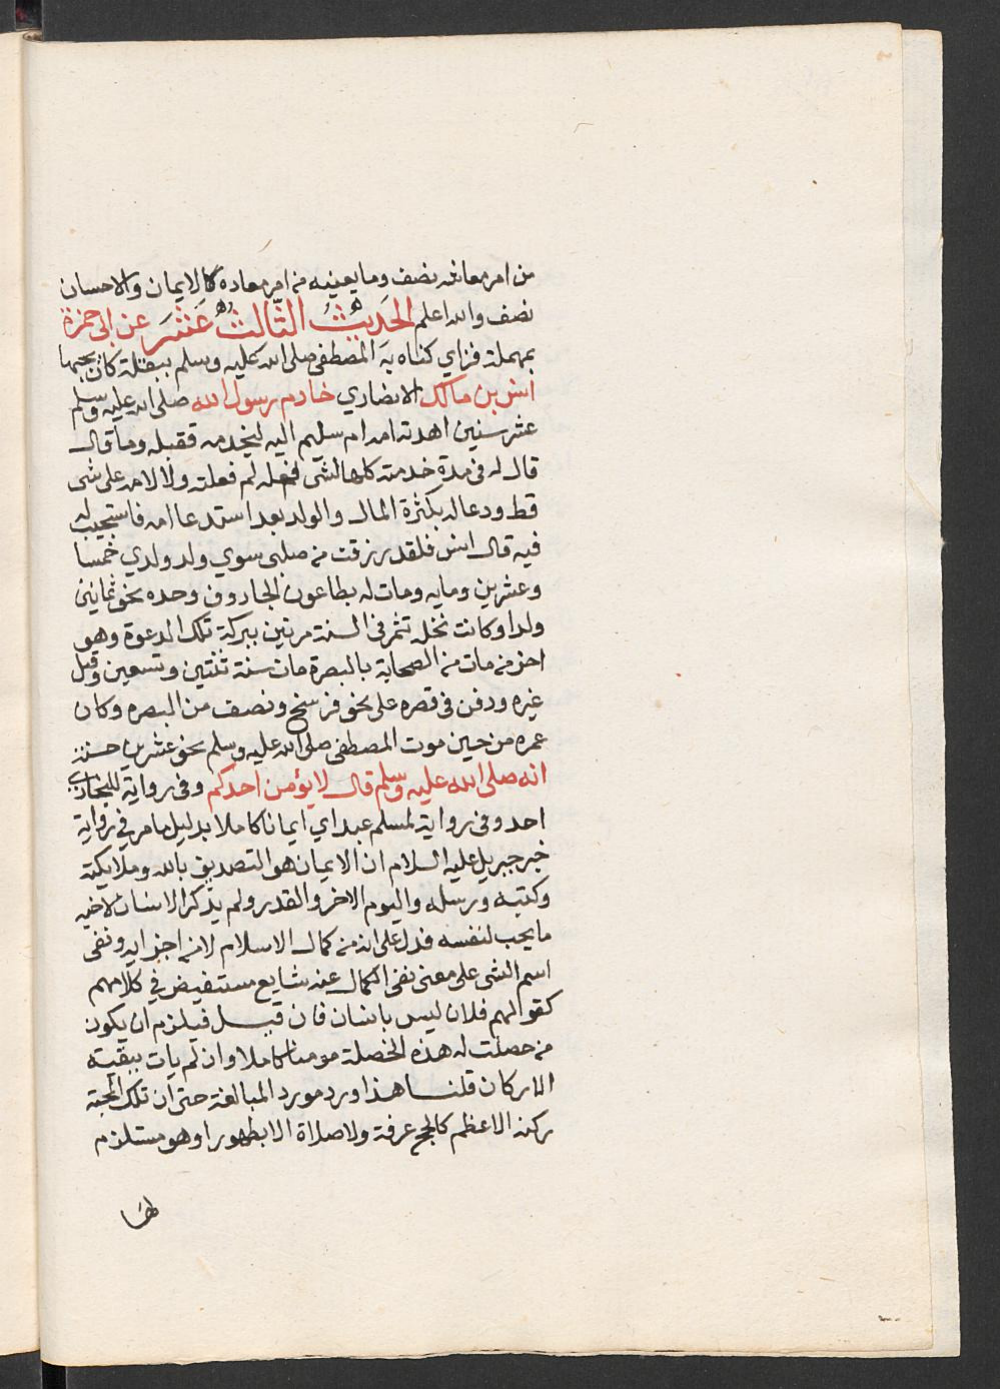 من امر معاشه نصف وما يعنيه من امر معاده كالايمان والاحسان
نصف والله اعلم الحديث الثالث عشر عن ابي حمزة
بمهملة فزاي كناه به المصطفى صلى الله عليه وسلم ببقلة كان يجبها
انس بن مالك الانصاري خادم رسول الله صلى الله عليه وسلم
عشر سنين اهدته امه ام سليم اليه ليخدمه فقبله وما قال
قال له في مدة خدمته كلها لشي فعله لم فعلته ولا لامه على شي
قط ودعا له بكثرة المال والولد بعد استدعا امه فاستجيب له
فيه قال انس فلقد رزقت من صلبي سوي ولد ولدي خمسا
وعشرين ومايه ومات له بطاعون الجاروف وحده نحو ثمانين
ولدا وكانت نخله تثمر في السنة مرتين ببركة تلك الدعوة وهو
اخر من مات من الصحابة بالبصرة مات سنة ثنتين وتسعين وقيل
غيره ودفن في قصره على نحو فرسخ ونصف من البصره وكان
عمره من حين موت المصطفى صلى الله عليه وسلم نحو عشرين سنة
انه صلى الله عليه وسلم قال لا يؤمن احدكم وفي رواية للبخاري
احد وفي رواية لمسلم عبد اي ايمانا كاملا بدليل ما مر في رواية
خبر جبريل عليه السلام ان الايمان هو التصديق بالله وملايكته
وكتبه ورسله واليوم الاخر والقدر ولم يذكر الانسان لاخيه
ما يحب لنفسه فدل على انه من كمال الاسلام لا من اجزايه ونفي
اسم الشي على معنى نفي الكمال عنه شايع مستفيض في كلامهم
كقولهم فلان ليس بانسان فان قيل فيلزم ان يكون
من حصلت له هذه الخصلة مومنا كاملا وان لم يات ببقية
الاركان قلنا هذا ورد مورد المبالغة حتى ان تلك المحبة
ركنه الاعظم كالحج عرفة ولا صلاة الا بطهور او هو مستلزم
لها